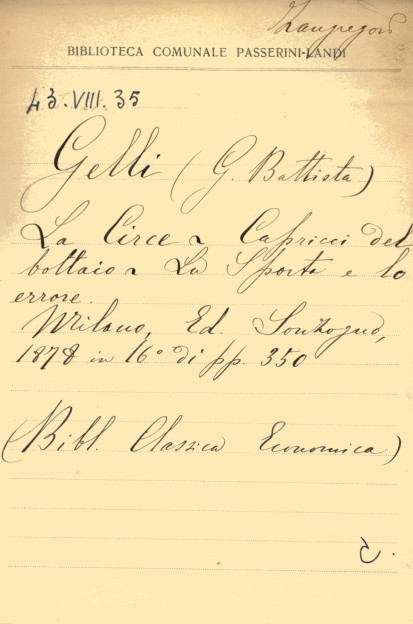 BIBLIOTECA COMUNALE PASSERINI-LANDI
43.VIII.35
Gelli (G. Battista)
La Circe ~ Capricci del
bottaio ~ La Sporta e lo
errore.
Milano, Ed. Sonzogno,
1878 in 16° di pp. 350
(Bibl. Classica Economica)